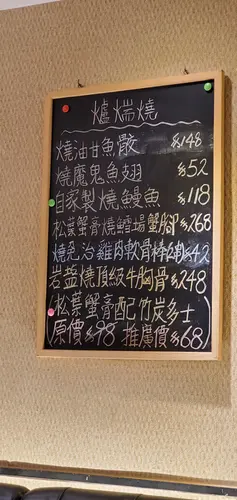 爐端燒
燒油甘魚骹 $148
燒魔鬼魚翅 $52
自家製燒鰻魚 $118
松葉蟹膏燒鱈場蟹腳 $268
燒免治雞肉軟骨棒 $42
岩鹽燒頂級牛胸骨 $248
(松葉蟹膏配竹炭多士)
(原價$98 推廣價$68)